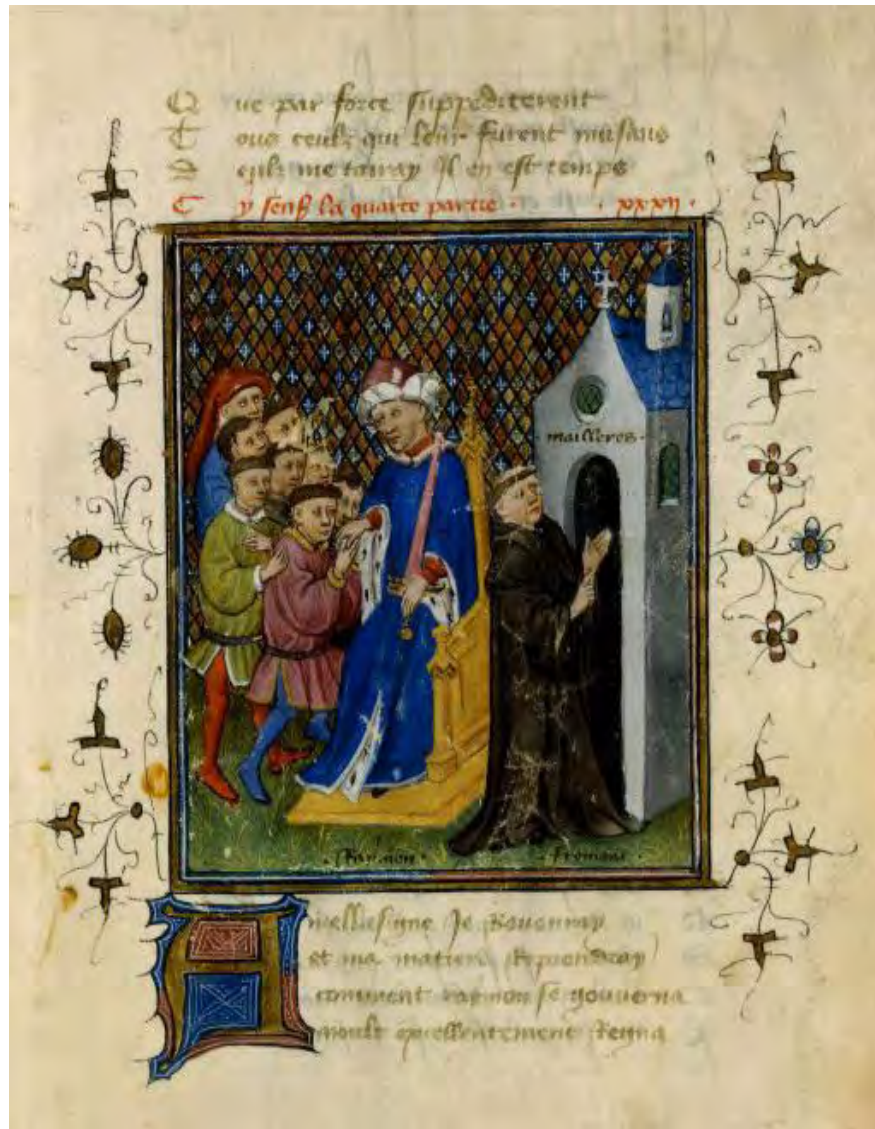 Que par force suppediterent
Tous ceulz qui leur furent nuisans
me tairay Il en est temps
Cy senß la quarte partie . . xxxii .
. mailleres .
. Raymon . . fromont .
A je Retourray
et ma matiere Reprendray
comment raymon se gouverna
moult excellentement Regna